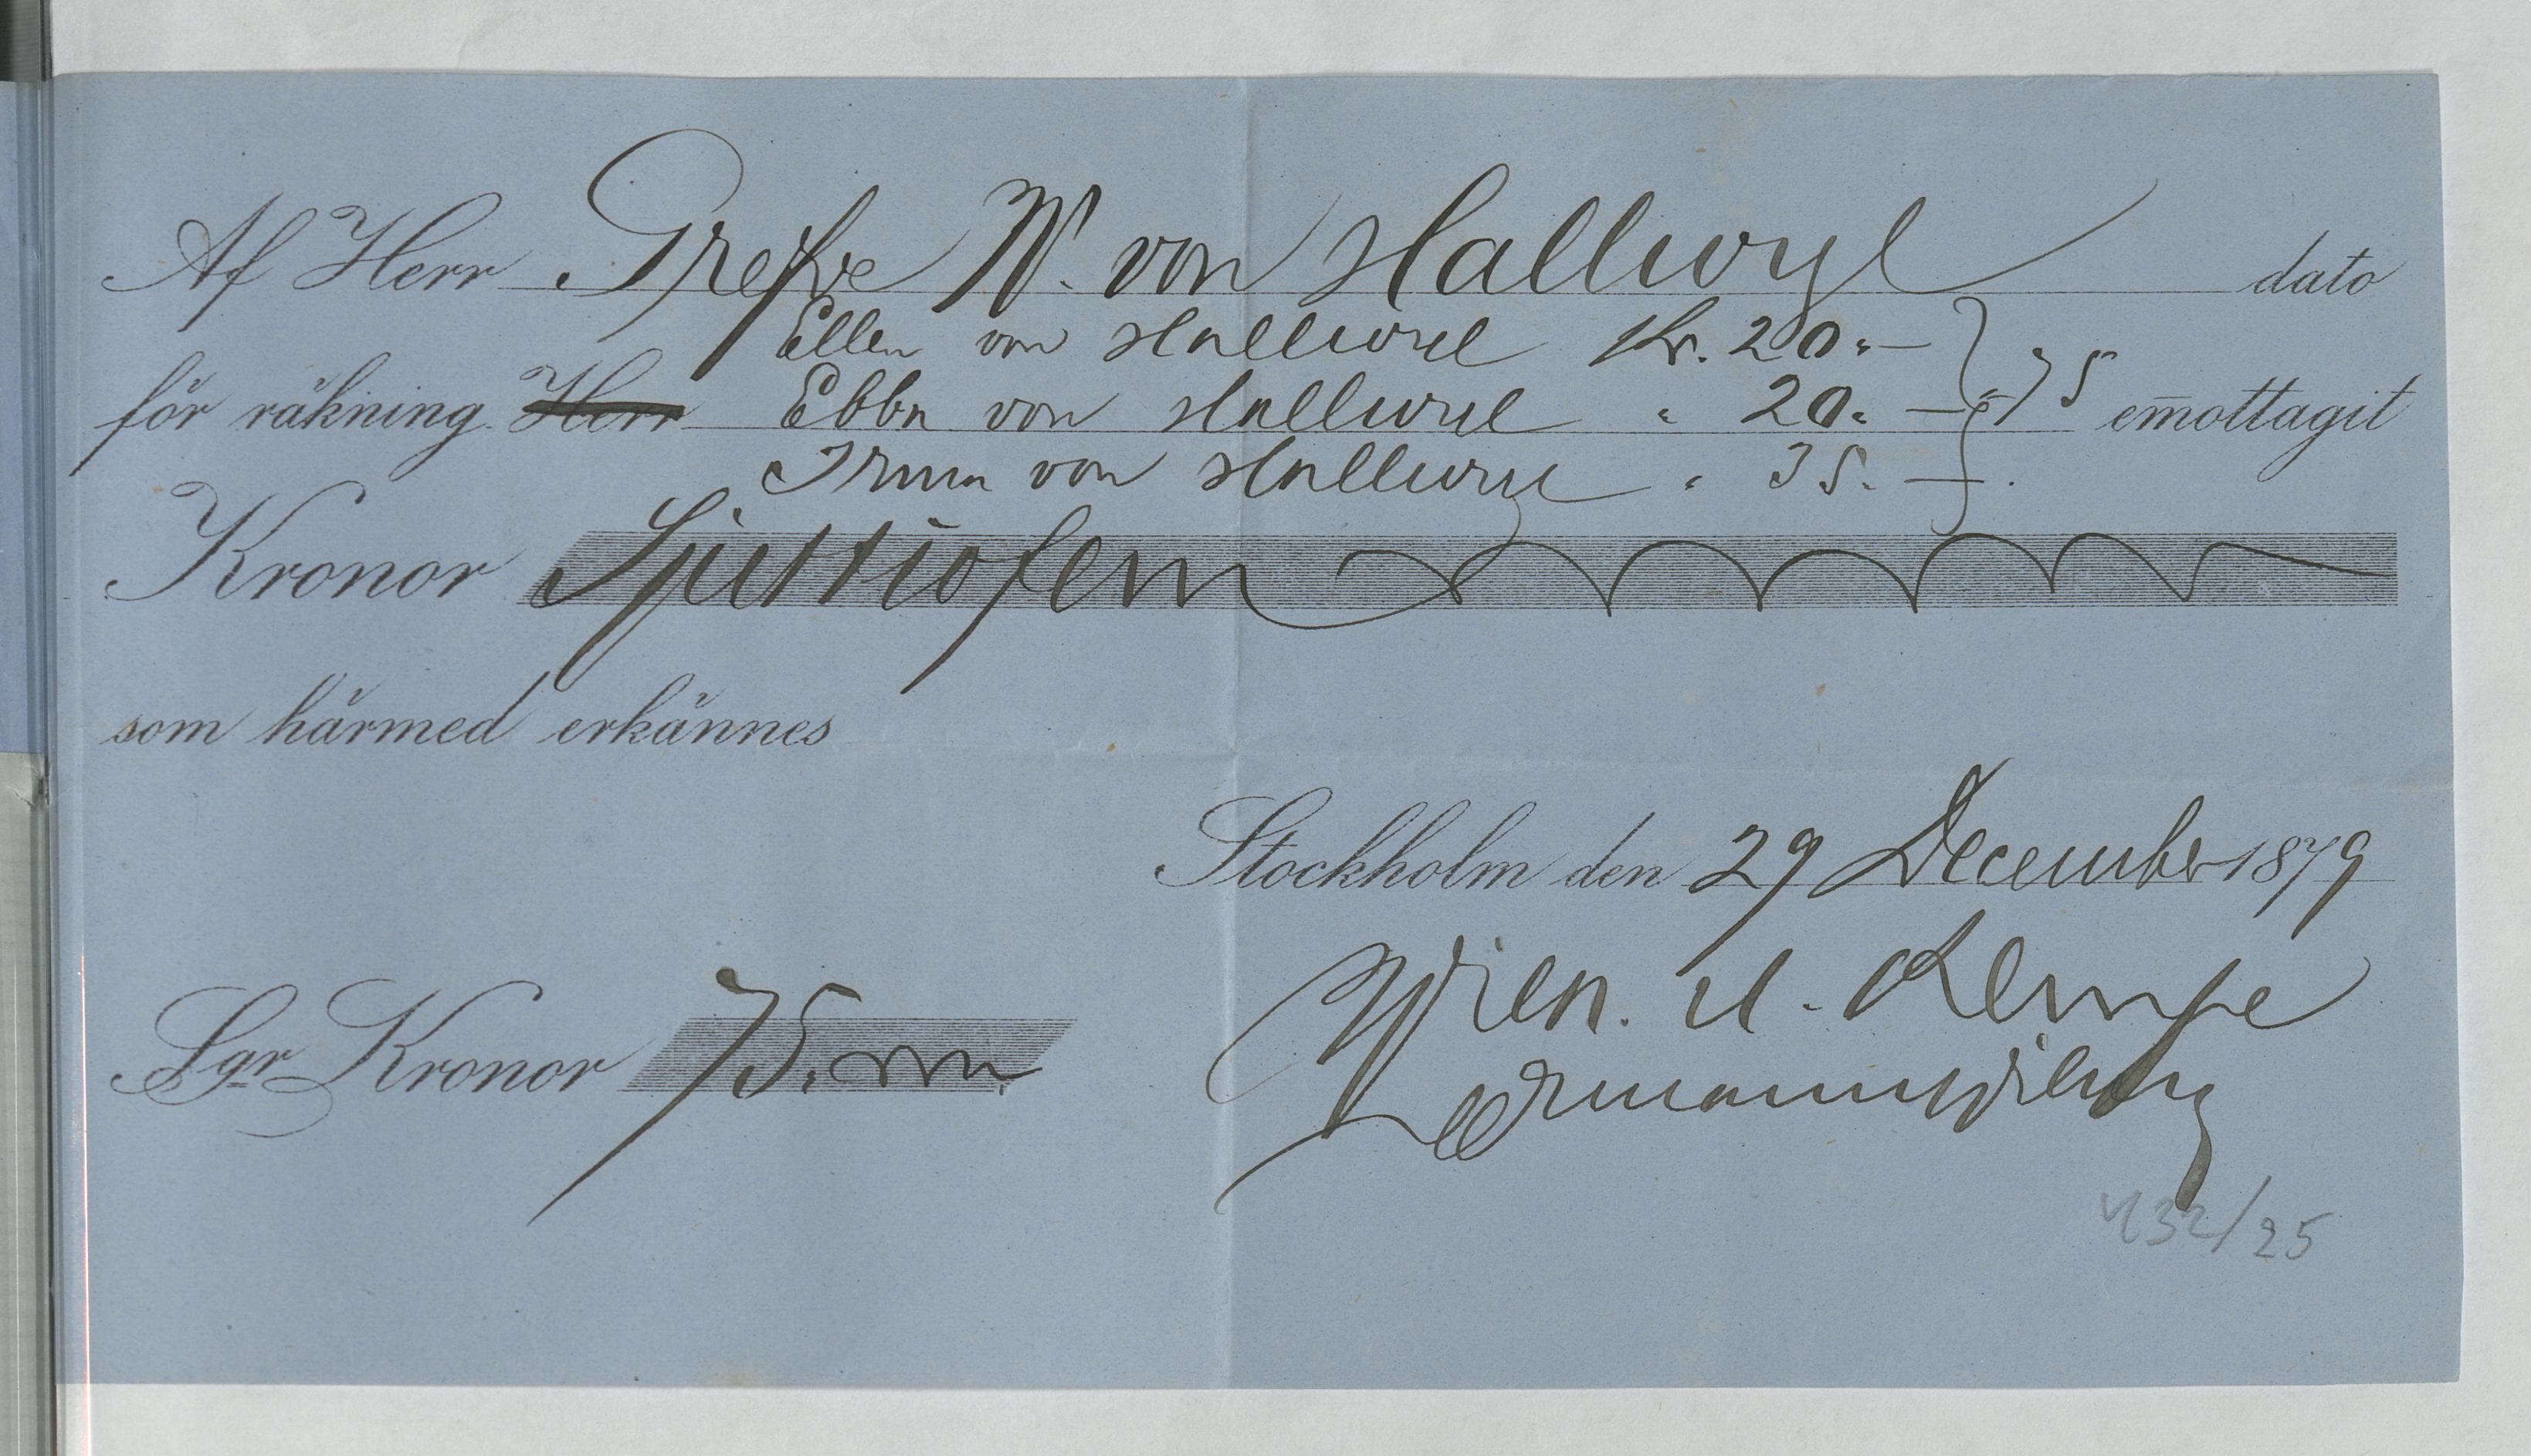 Af Herr Grefve W. von Hallwyl dato
Ellen von Hallwyl Kr. 20.—
för räkning Herr Ebba von Hallwyl " 20.— 75 emottagit
Irma von Hallwyl " 35.—
Kronor Sjuttiofem
som härmed erkännes
Stockholm den 29 December 1879
Wilh. H. Kempe
Sgr Kronor 75.
432/25